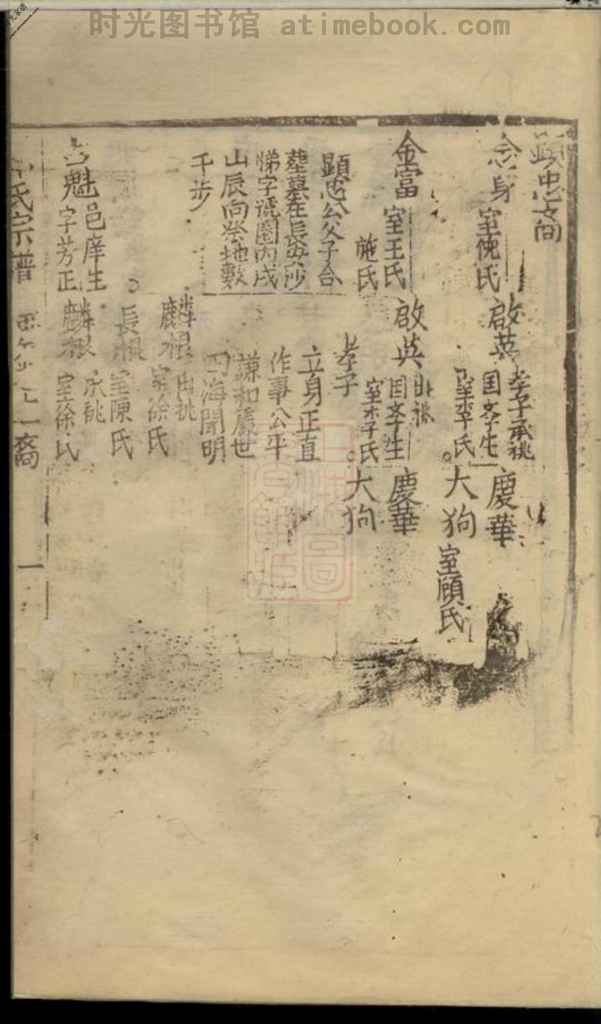 时光图书馆 atimebook.com
顕忠裔
念身 室倪氏
啟英 孝子承祧
国孝生
室李氏
慶華
大狗 室顧氏
金富 室王氏
施氏
啟英
国孝生
室李氏
慶華
孝子
大狗
顕忠公父子合
塟墓在長安沙
悌字號圍丙戌
山辰向祭地數
千步
立身正直
作事公平
謙和處世
四海聞明
麟根
室徐氏
長根
室陳氏
魁 邑庠生
字芳正
麟根 承祧
室徐氏
氏宗譜
裔 一